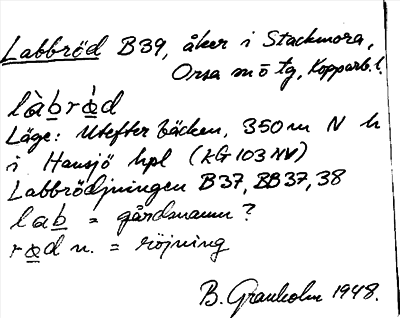 Labbröd B39, åker i Stackmora,
Orsa sn ö tg, Kopparb. l.
làbrò̱d
Läge: Utefter bäcken, 350m N h
i Hansjö hpl (KG 103 NV)
Labbrödjningen B37, BB37,38
lab = gårdsnamn?
rød n. = röjning
B. Granholm 1948.